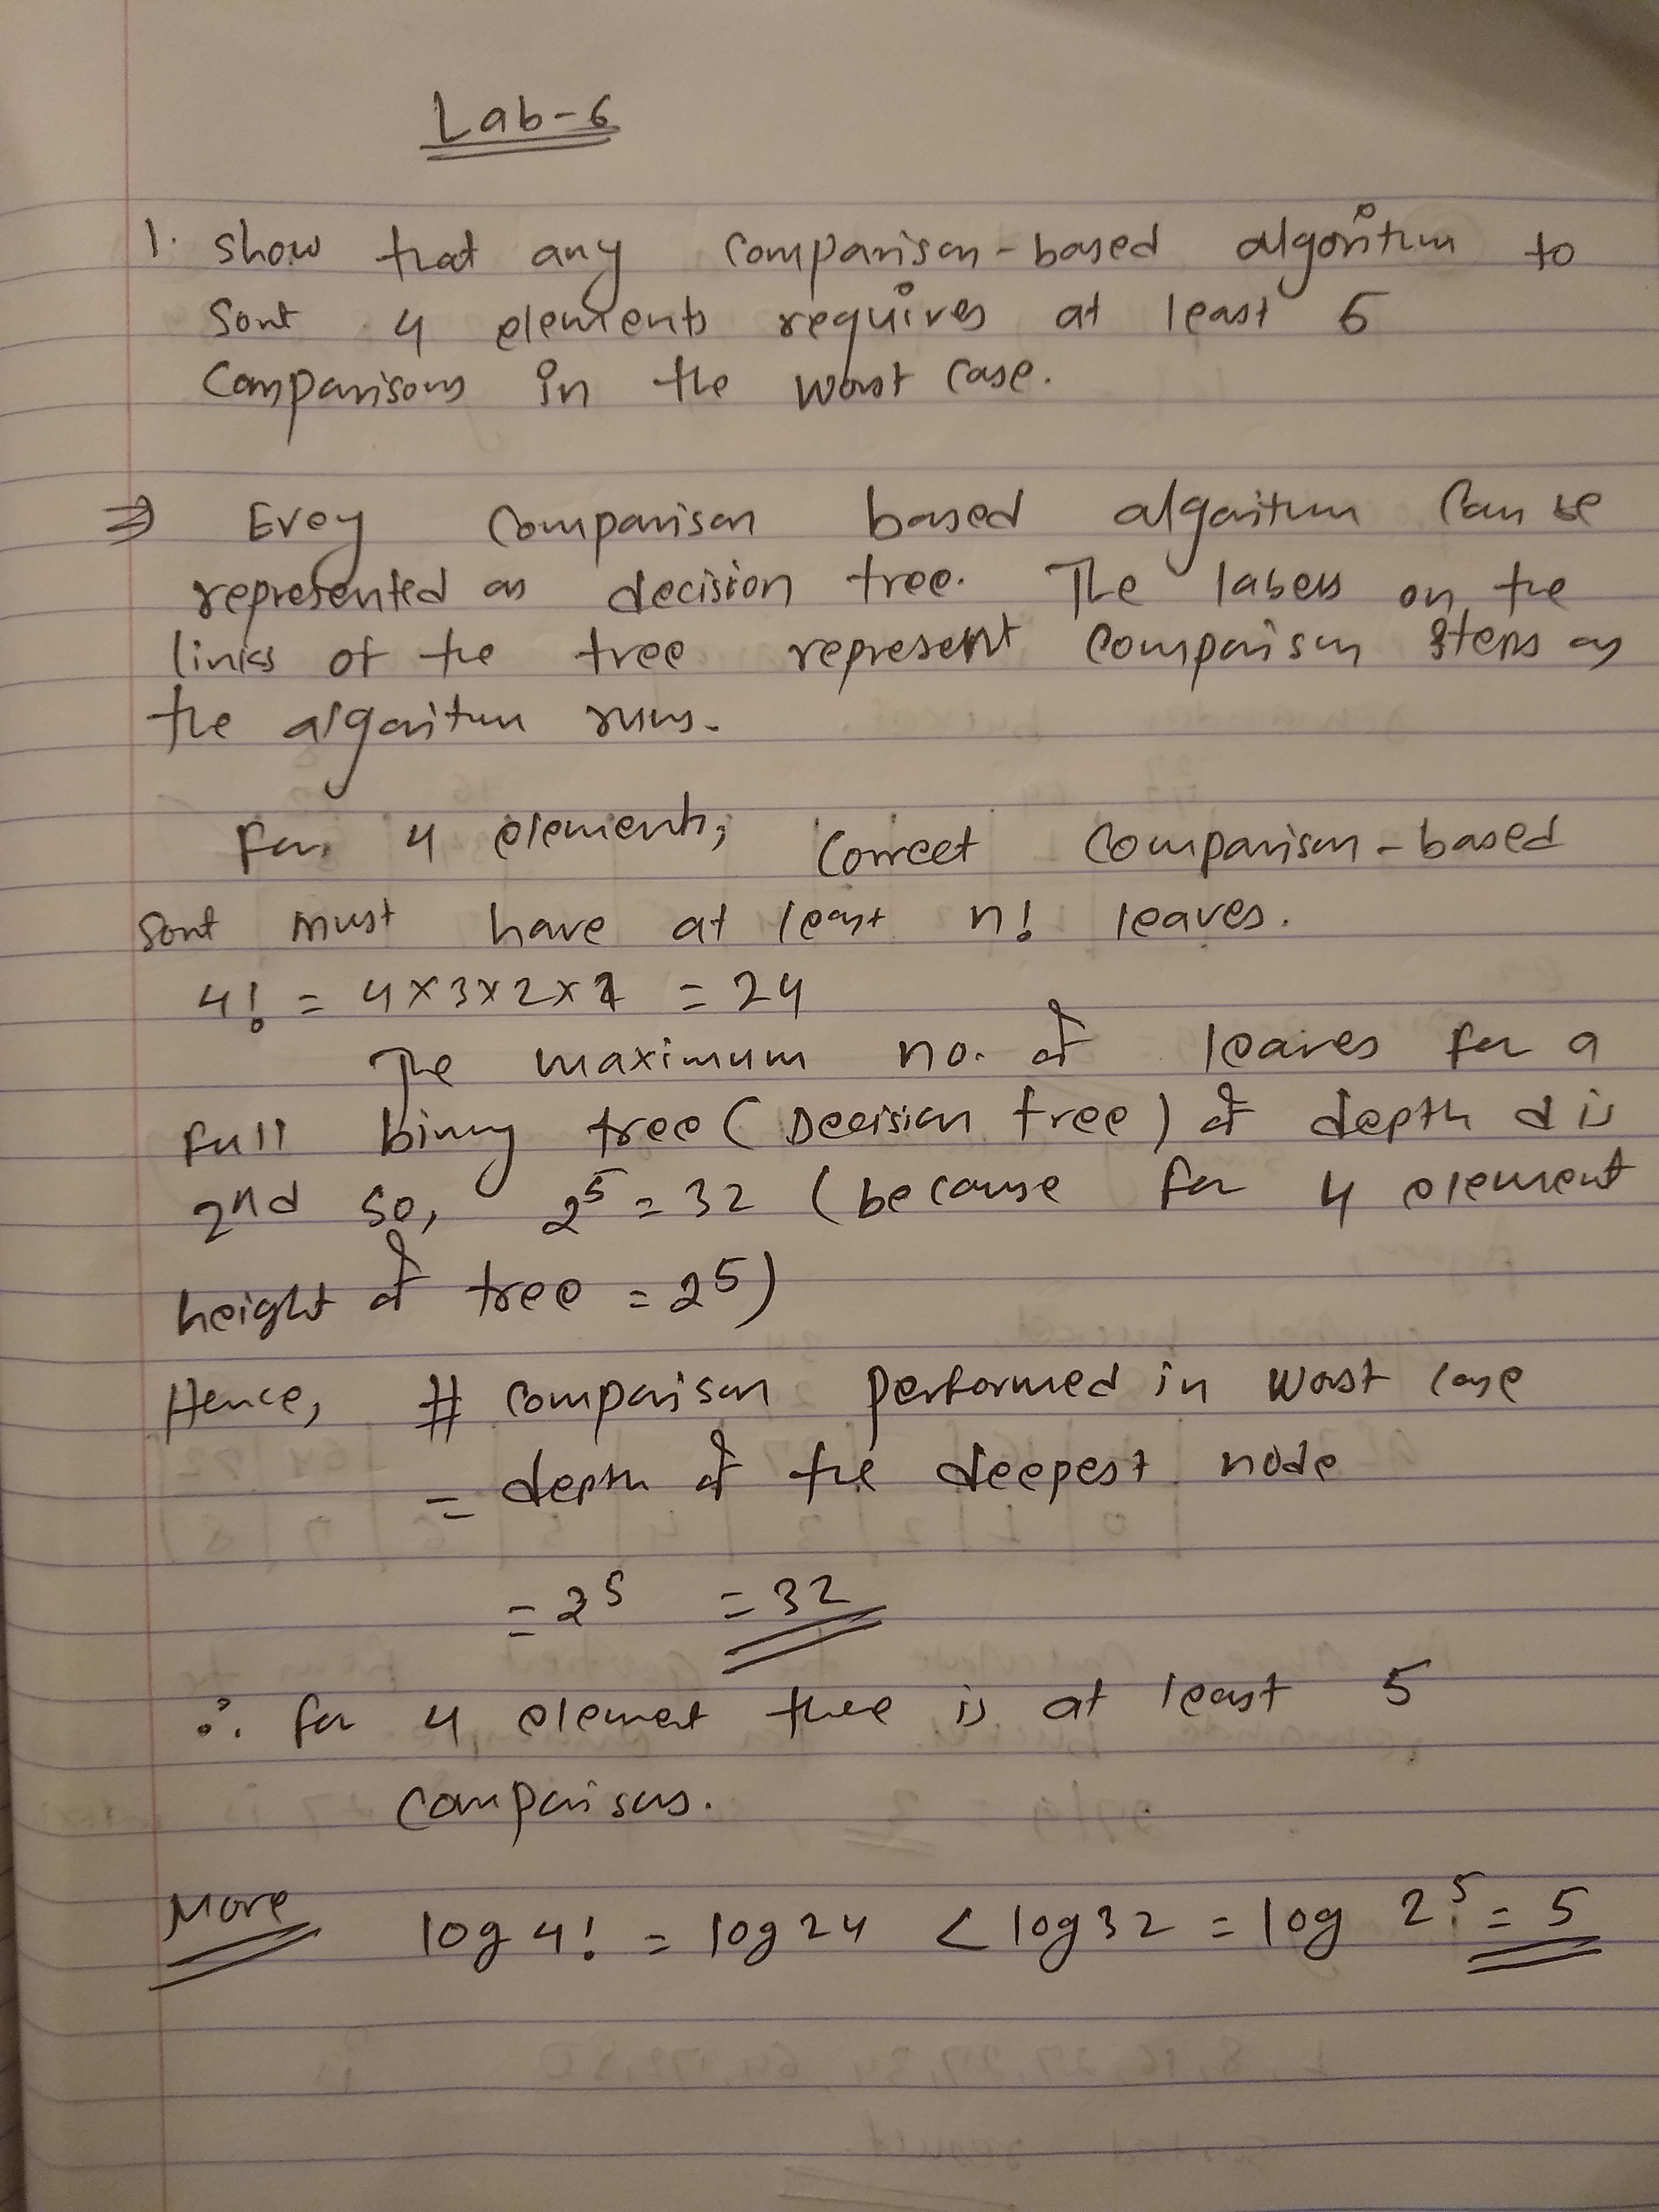 Lab-6
1. show that any comparison-based algorithm to
sort 4 elements requires at least 5
Comparisons in the worst case.
⇒ Every Comparison based algorithm Can be
represented as decision tree. The labels on the
links of the tree represent Comparison steps as
the algorithm runs.
For 4 elements, Correct Comparison-based
sort must have at least n! leaves.
4! = 4×3×2×1 = 24
The maximum no. of leaves for a
full binary tree (Decision tree) of depth d is
2nd so, 2^5 = 32 (because for 4 element
height of tree = 2^5)
Hence, # comparison performed in worst case
= depth of the deepest node
= 2^5 = 32
∴ for 4 element there is at least 5
comparisons.
More log 4! = log 24 < log 32 = log 2^5 = 5